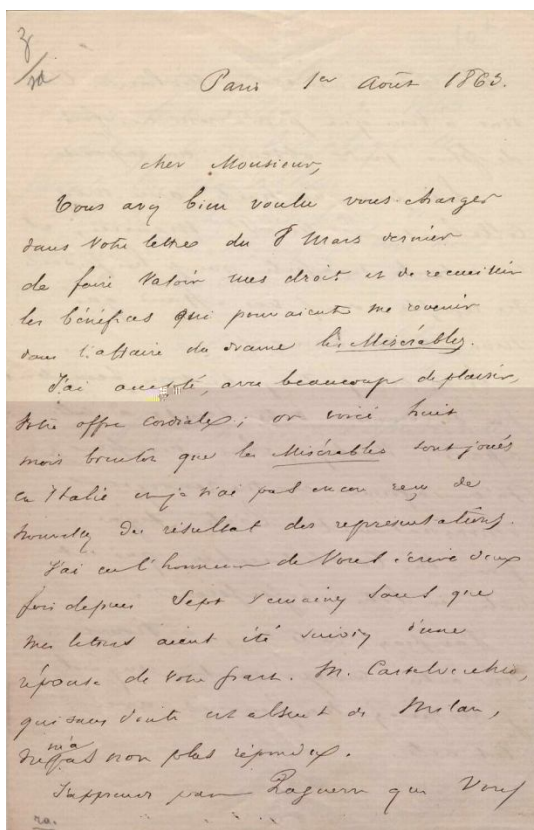 3/rd
Paris 1er Août 1863.
cher Monsieur,
Vous avez bien voulu vous charger
dans votre lettre du 8 Mars dernier
de faire valoir mes droit et de recueillir
les bénéfices qui pouvaient me revenir
dans l'affaire du drame les Misérables.
J'ai accepté, avec beaucoup de plaisir,
votre offre cordiale; or voici huit
mois bientôt que les Misérables sont joués
en Italie et je n'ai pas encore reçu de
nouvelles du résultat des représentations.
J'ai eu l'honneur de vous écrire deux
fois depuis sept semaines sans que
mes lettres aient été suivies d'une
réponse de votre part. M. Castelvecchio,
qui sans doute est absent de Milan,
ne m'a pas non plus répondu.
J'apprends par Raguerre que vous